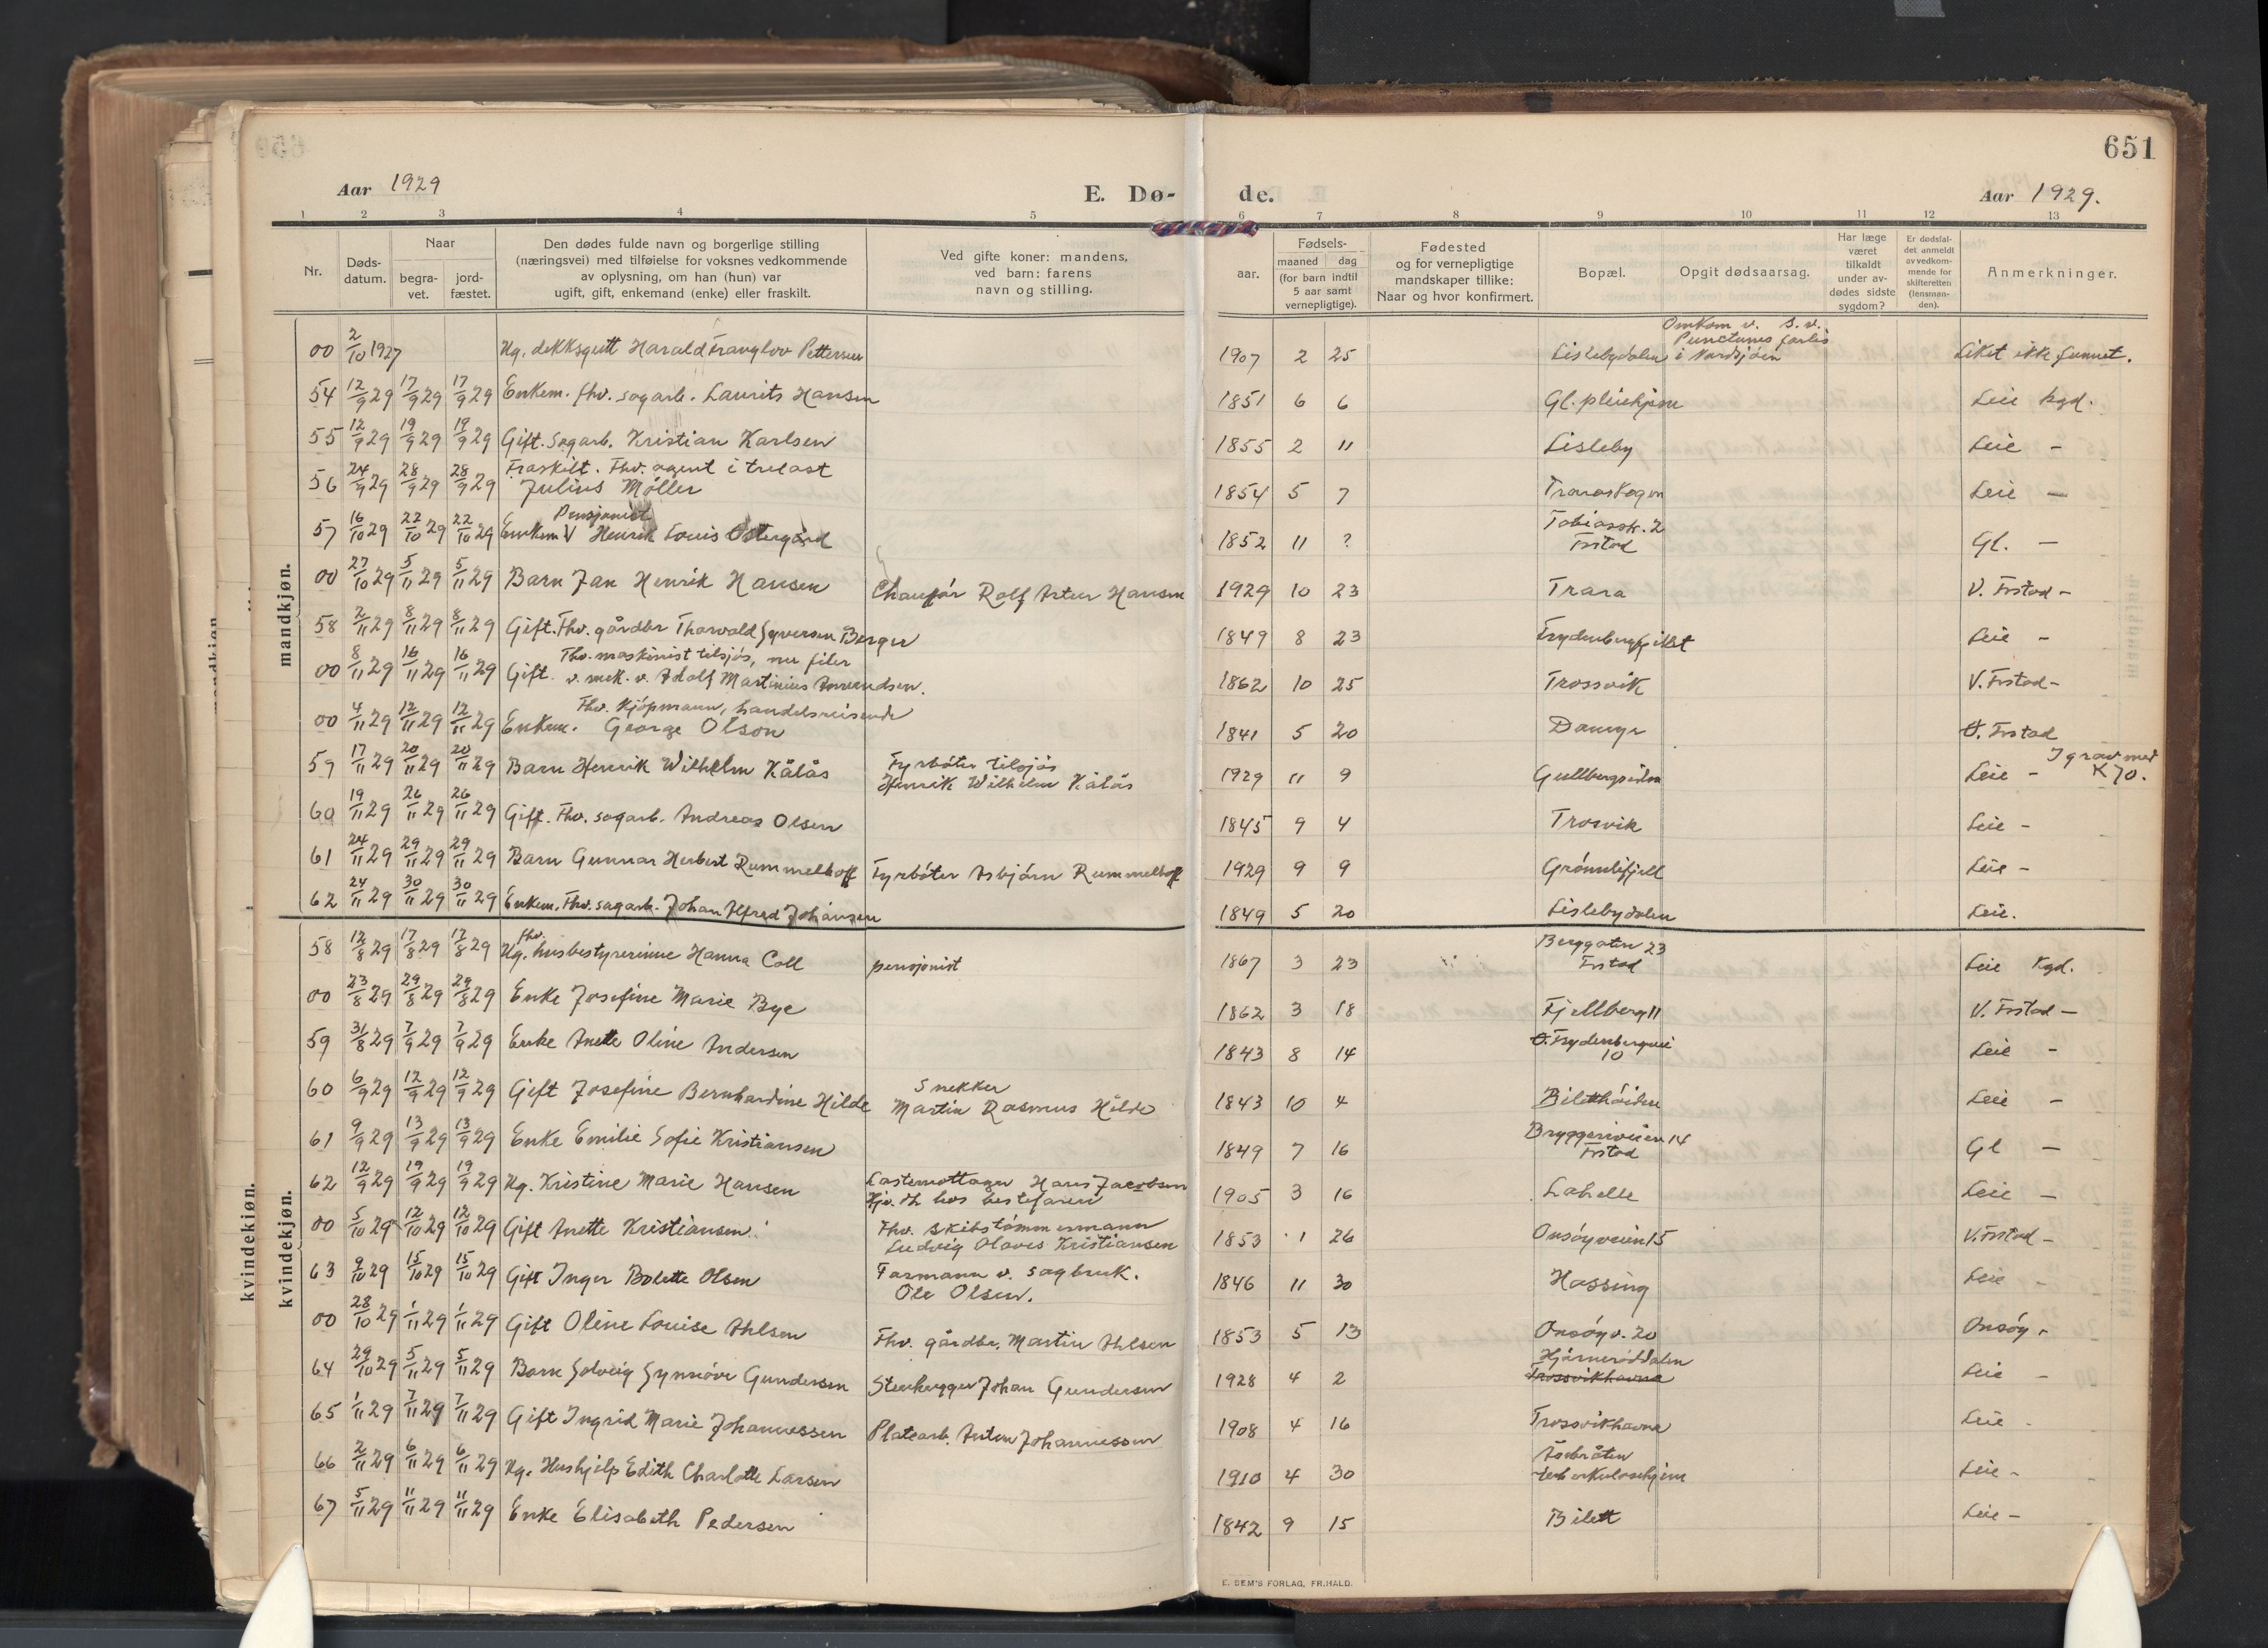 651
Aar 1929
E. Dø-
de.
Aar 1929.
1 2 3 4 5 6 7 8 9 10 11 12 13
Nr.
Døds-
datum.
Naar
begra-
vet.
jord-
fæstet.
Den dødes fulde navn og borgerlige stilling
(næringsvei) med tilføielse for voksnes vedkommende
av oplysning, om han (hun) var
ugift, gift, enkemand (enke) eller fraskilt.
Ved gifte koner: mandens,
ved barn: farens
navn og stilling.
aar.
Fødsels-
maaned dag
(for barn indtil
5 aar samt
vernepligtige).
Fødested
og for vernepligtige
mandskaper tillike:
Naar og hvor konfirmert.
Bopæl.
Opgit dødsaarsag.
Har læge
været
tilkaldt
under av-
dødes sidste
sygdom?
Er dødsfal-
det anmeldt
av vedkom-
mende for
skifteretten
(lensman-
den).
Anmerkninger.
mandkjøn.
Omkom v. S.v.
Punctunes forlis
00 2/10 1927 Ug. dekksgutt Harald Tranglov Pettersen 1907 2 25 Lislebydalen i Nordsjøen Liket ikke funnet.
54 12/9 29 17/9 29 17/9 29 Enkem. fhv. sagarb. Laurits Hansen 1851 6 6 Gl. pleiehjem Leie kgd.
55 12/9 29 19/9 29 19/9 29 Gift. Sagarb. Kristian Karlsen 1855 2 11 Lisleby Leie -
Fraskilt. Fhv. agent i trelast
56 24/9 29 28/9 29 28/9 29 Julius Møller 1854 5 7 Traraskogen Leie -
Pensjonist Tobiasstr. 2
57 16/10 29 22/10 29 22/10 29 Enkem V Henrik Louis Østergård 1852 11 ? Frstad Gl. -
00 27/10 29 5/11 29 5/11 29 Barn Jan Henrik Hansen Chauffør Rolf Artur Hansen 1929 10 23 Trara V. Frstad -
58 2/11 29 8/11 29 8/11 29 Gift. Fhv. gårdbr Thorvald Syversen Berger 1849 8 23 Frydenbergfjellet Leie -
Fhv. maskinist tilsjøs, nu filer
00 8/11 29 16/11 29 16/11 29 Gift. v. mek. v. Adolf Martinius Amundsen. 1862 10 25 Trossvik V. Frstad -
Fhv. Kjøpmann, handelsreisende
00 4/11 29 12/11 29 12/11 29 Enkem. George Olson 1841 5 20 Damyr Ø. Frstad
Fyrbøter tilsjøs I grav med
59 17/11 29 20/11 29 20/11 29 Barn Henrik Wilhelm Kålås Henrik Wilhelm Kålås 1929 11 9 Gullbergsiden Leie - K 70.
60 19/11 29 26/11 29 26/11 29 Gift. Fhv. sagarb. Andreas Olsen 1845 9 4 Trosvik Leie -
61 24/11 29 29/11 29 29/11 29 Barn Gunnar Herbert Rummelhoff Fyrbøter Asbjørn Rummelhoff 1929 9 9 Grønnlifjell Leie -
62 24/11 29 30/11 29 30/11 29 Enkem. Fhv. sagarb. Johan Alfred Johansen 1849 5 20 Lislebydalen Leie.
kvindekjøn.
kvindekjøn.
fhv. Berggaten 23
58 12/8 29 17/8 29 17/8 29 Ug. husbestyrerinne Hanna Coll pensjonist 1867 3 23 Frstad Leie Kgd.
00 23/8 29 29/8 29 29/8 29 Enke Josefine Marie Bye 1862 3 18 Fjellberg 11 V. Frstad -
59 31/8 29 7/9 29 7/9 29 Enke Anette Oline Andersen 1843 8 14 Ø. Frydenbergvei 10 Leie -
Snekker
60 6/9 29 12/9 29 12/9 29 Gift Josefine Bernhardine Hilde Martin Rasmus Hilde 1843 10 4 Biletthøiden Leie -
Bryggeriveien 14
61 9/9 29 13/9 29 13/9 29 Enke Emilie Sofie Kristiansen 1849 7 16 Frstad Gl -
Lastemottager Hans Jacobsen
62 12/9 29 19/9 29 19/9 29 Ug. Kristine Marie Hansen hos bestefaren 1905 3 16 Lahelle Leie -
Fhv. Skibstømmermann
00 5/10 29 12/10 29 12/10 29 Gift Anette Kristiansen. Ludvig Olaves Kristiansen 1853 1 26 Onsøyveien 15 V. Frstad -
Formann v. sagbruk.
63 9/10 29 15/10 29 15/10 29 Gift Inger Bolette Olsen Ole Olsen. 1846 11 30 Hassing Leie -
00 28/10 29 1/11 29 1/11 29 Gift Oline Louise Ahlsen Fhv. gårdbr. Martin Ahlsen 1853 5 13 Onsøy v. 20 Onsøy -
Hjørnerøddalen
64 29/10 29 5/11 29 5/11 29 Barn Solveig Synnøve Gundersen Stenhugger Johan Gundersen 1928 4 2 Trossvikhavna Leie -
65 1/11 29 7/11 29 7/11 29 Gift Ingrid Marie Johannessen Platearb. Anton Johannessen 1908 4 16 Trossvikhavna Leie -
Åsebråten
66 2/11 29 6/11 29 6/11 29 Ug. Hushjelp Edith Charlotte Larsen 1910 4 30 tuberkulosehjem Leie -
67 5/11 29 11/11 29 11/11 29 Enke Elisabeth Pedersen 1842 9 15 Bilett Leie -
E. SEM'S FORLAG, FR.HALD.